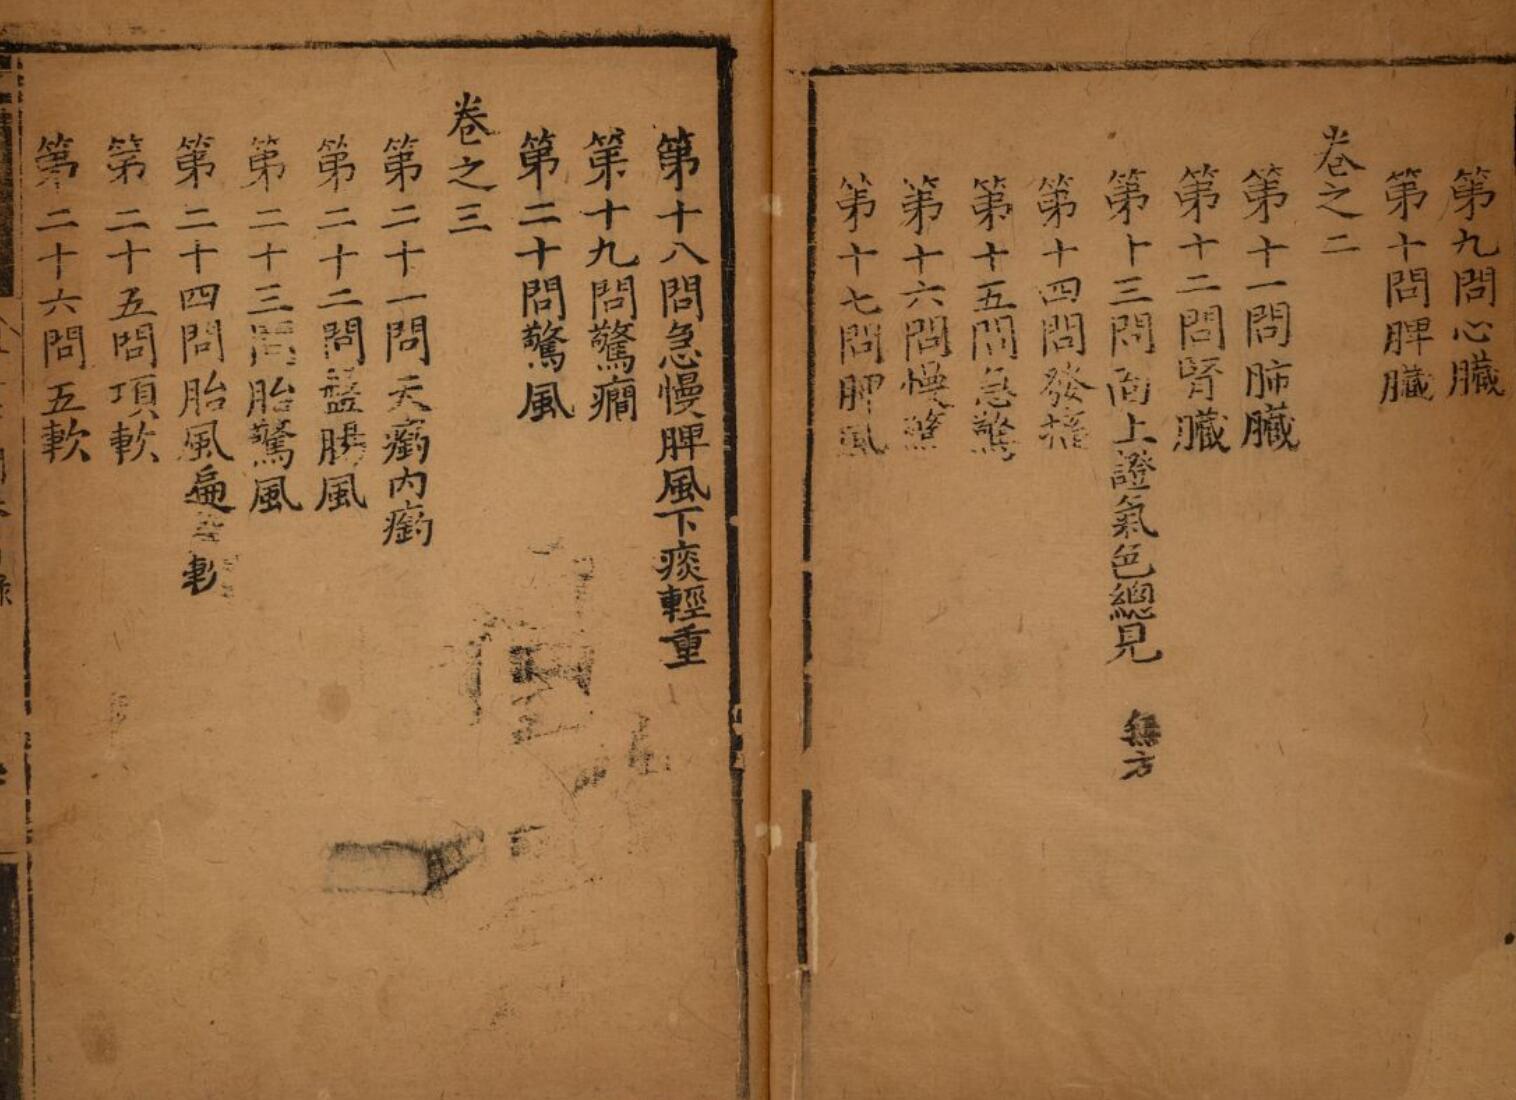 第九問心臟
第十問脾臟
卷之二
第十一問肺臟
第十二問腎臟
第十三問面上證氣色總見 無方
第十四問發搐
第十五問急驚
第十六問慢驚
第十七問脾風
第十八問急慢脾風下痰輕重
第十九問驚癎
第二十問驚風
卷之三
第二十一問天瘹內瘹
第二十二問盤腸風
第二十三問胎驚風
第二十四問胎風
第二十五問項軟
第二十六問五軟